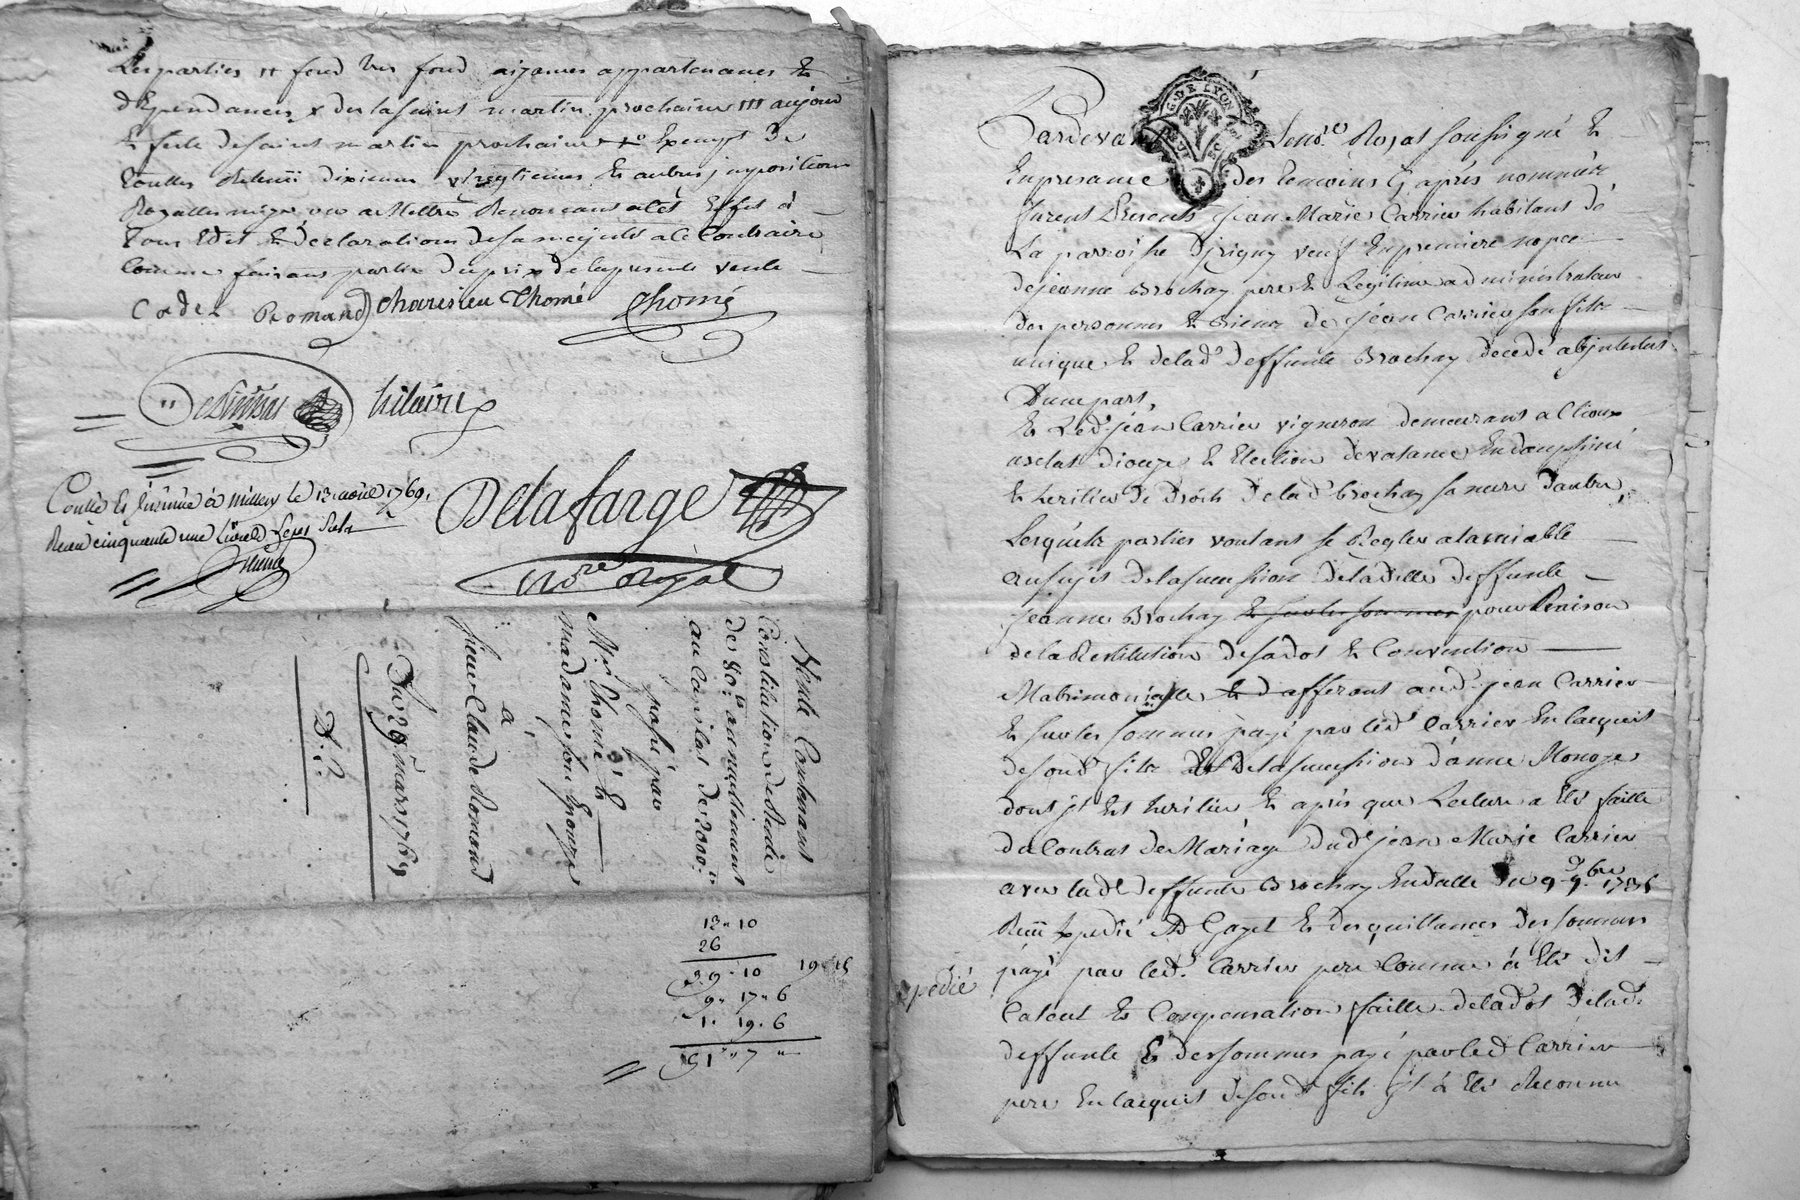 Les parties et fond tres fond aizances appartenances Et
dEpendances x de la saint martin prochaine aujour
Et feste de saint martin prochaine Exempt De
touttes Retenüe dixieme vingtieme Et autres jmpositions
Royalles mize ou a Mettre Renoncant a cet Effet à
tous Edit Et déclarations de sa majesté a ce Contraire
Comme faisant partie du prix de la presente vente
Codet Romand charisieu Thomé Thomé
hilaire
Delafarge
Nore Royal
Controllé Et à millery le 13 aoüt 1769.
Recu cinquante une Livre Sept Sols
Vente Contenant
Constitution de Rente
de 80 lt annuellement
au Capital de 2000 lt
passé par
Mr. Thomé Et
madame son Epouze
à
sieur Claude Romand
Du 29 mars 1769
13 " 10
26
39 " 10 19 15
9 " 17 " 6
1 " 19 " 6
51 " 7 "
Pardevant Le notre Royal soussigné Et
G. DE LYON
En presance des temoins cy après nommés
furent Presents Jean Marie Carrier habitant de
La parroisse d'jrigny veuf En premiere nopce
de jeanne Brochay pere Et Legitime administrateur
des personnes Et Biens de jean Carrier son fils
unique Et de lad. deffunte Brochay decedé abjntestat
D'une part,
Et Led. jean Carrier vigneron demeurant a
Election de valance En dauphiné
Et heritier de droit de lad. Brochay sa mere d'autre,
Lesquels parties voulant se Regler a lamiable
au sujet de la succession de laditte deffunte
jeanne Brochay Et sur les sommes pour Raison
de la Restitution de sa dot Et Convention
Matrimonialle Et d afferant aud. jean Carrier
Et sur les sommes payé par led. Carrier En lacquit
de sond. fils de la succession d'anne Monoyer
dont jl Est heritier Et après que Lecture a Eté faitte
du Contrat de Mariage dud. jean Marie Carrier
avec lad. deffunte Brochay En datte du 9 9bre
Expedié Gayet Et des quittances des sommes
payé par led. Carrier pere Comme à Eté dit
pedié
Calcul Et Compensation faitte de la dot de lad.
deffunte Et des sommes payé par led Carrier
pere En lacquit de sond. fils jl à Eté Reconnu